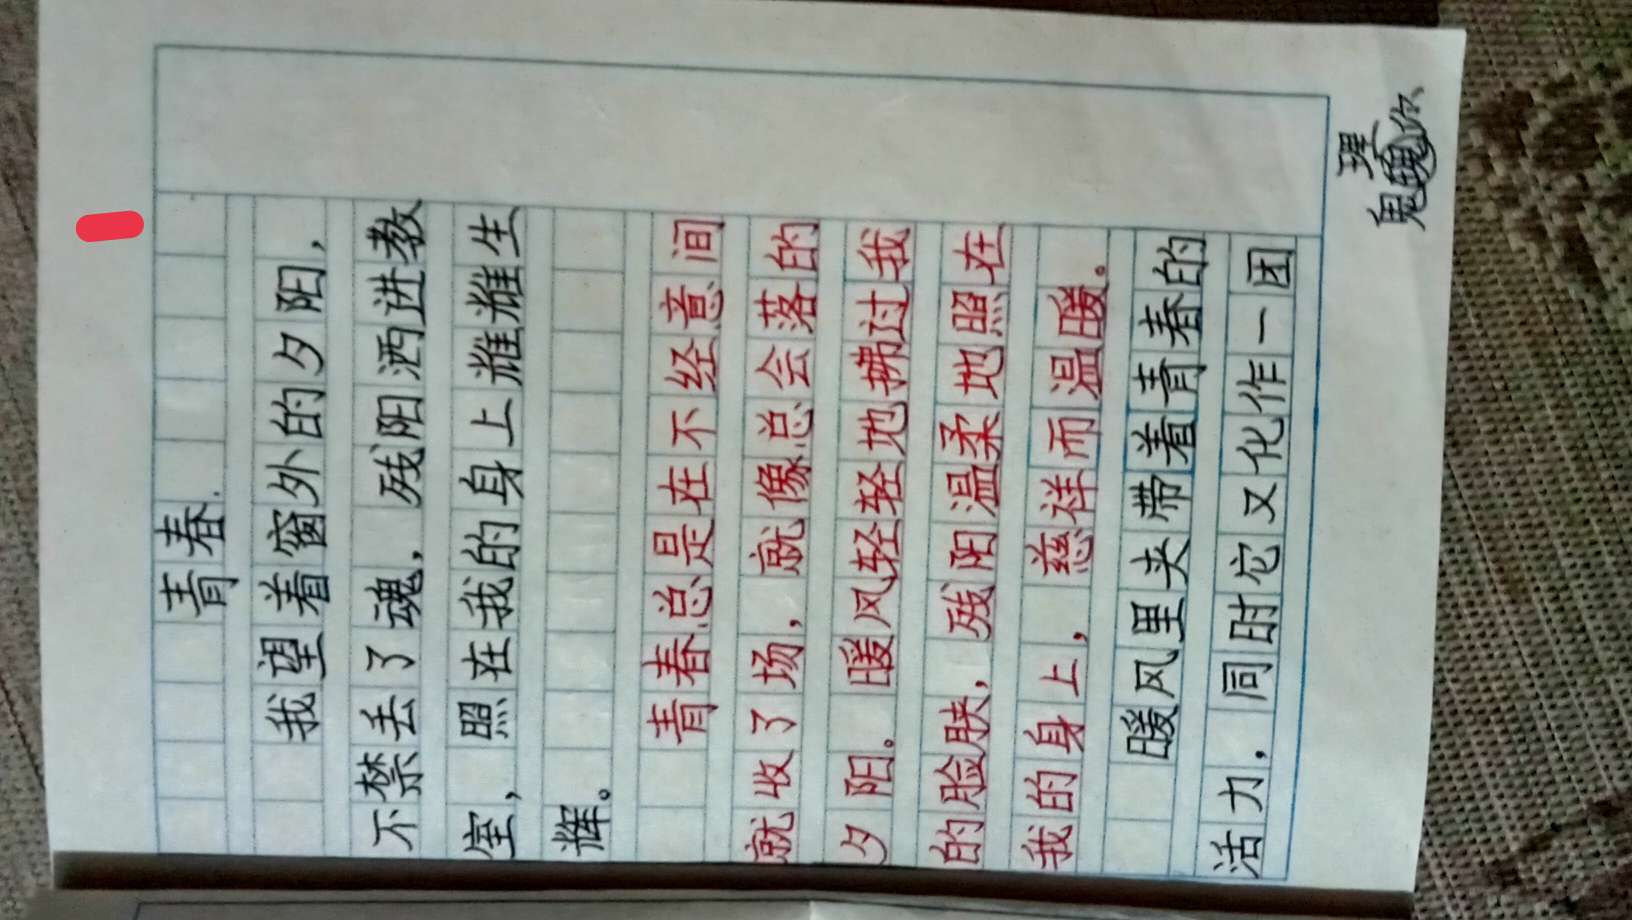 青春
我望着窗外的夕阳,
不禁丢了魂,残阳洒进教
室,照在我的身上,熠熠生
辉。
青春总是在不经意间
就收了场,就像总会落的
夕阳。暖风轻轻地拂过我
的脸颊,残阳温柔地照在
我的身上,慈祥而温暖。
暖风里夹带着青春的
活力,同时它又化作一团
理
鬼魂你